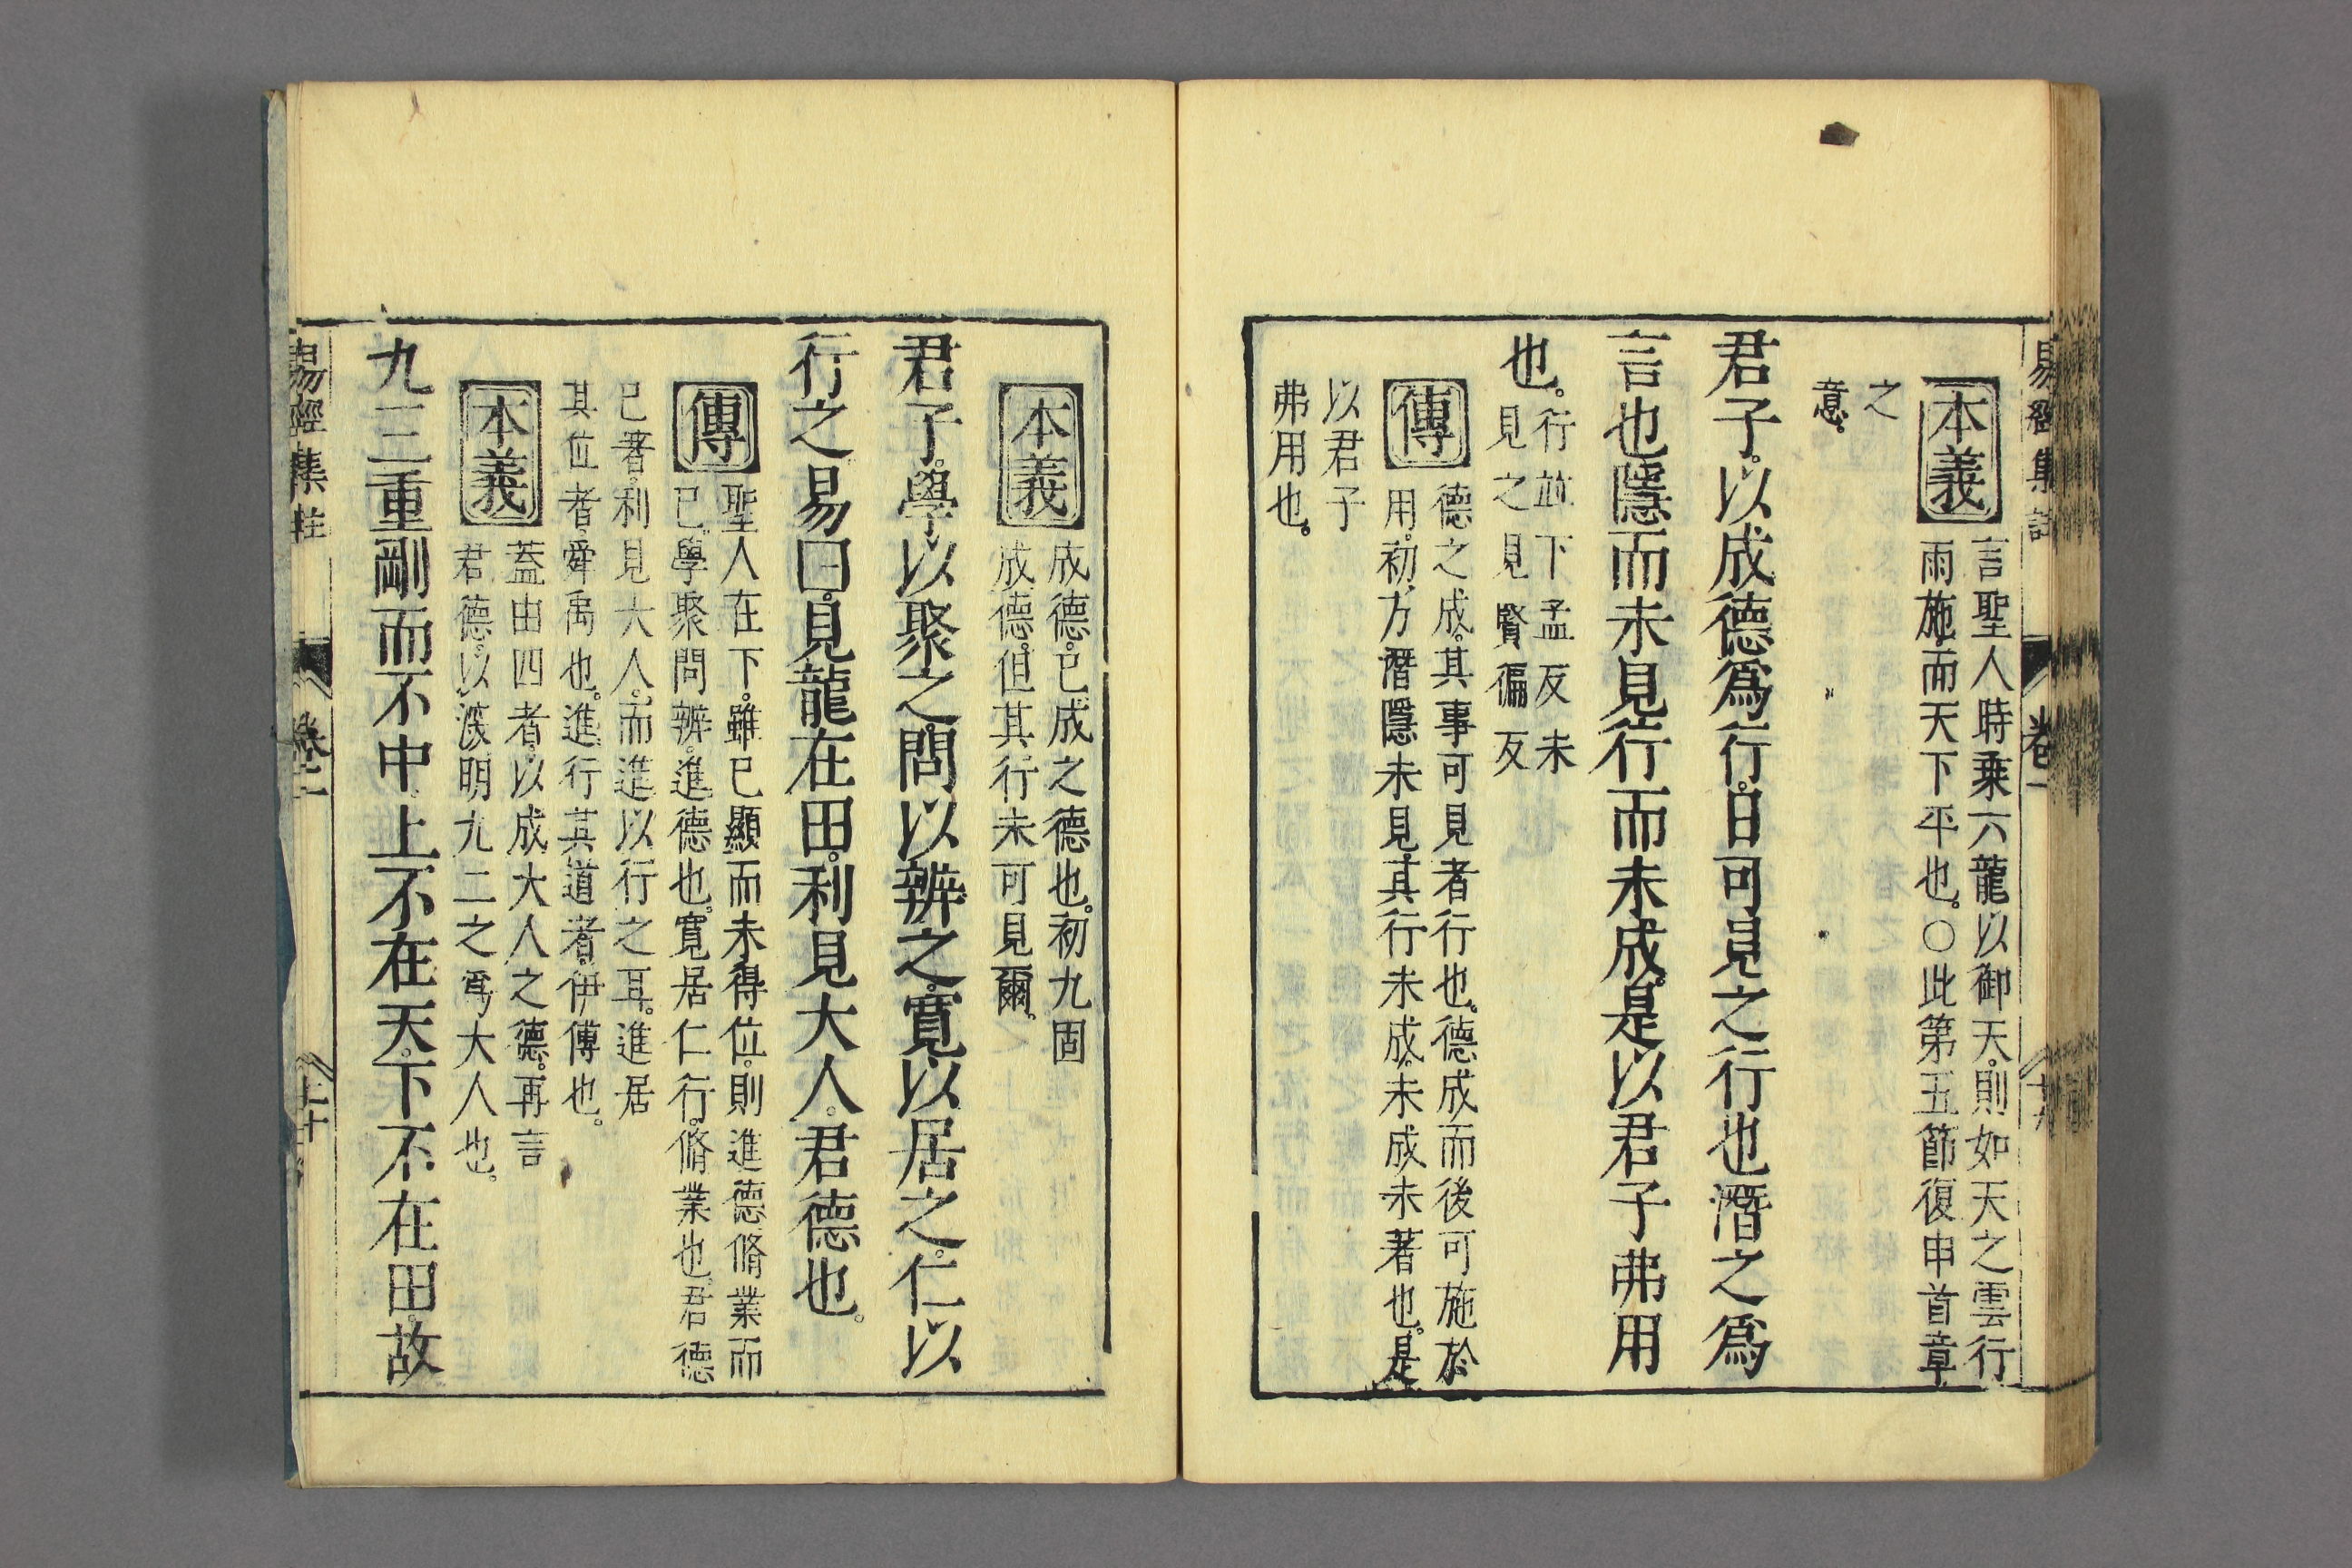 易經集註
卷一
本義
言聖人時乗六龍以御天。則如天之雲行
雨施。而天下平也。○此第五節復申首章
之
意。
君子。以成德爲行。日可見之行也潛之爲
言也隱而未見。行而未成。是以君子弗用
也。
行並下孟反未
見之見賢徧反
傳
德之成。其事可見者行也。德成而後可施於
用。初方潛隱未見。其行未成。未成未著也。是
以君子
弗用也。
本義
成德。已成之德也。初九固
成德。但其行未可見爾。
君子。學以聚之。問以辨之。寬以居之。仁以
行之。易曰。見龍在田。利見大人。君德也。
傳
聖人在下。雖已顯而未得位。則進德脩業而
已。學聚問辨。進德也。寬居仁行。脩業也。君德
已著。利見大人。而進以行之耳。進居
其位者。舜禹也。進行其道者。伊傅也。
本義
蓋由四者。以成大人之德。再言
君德。以深明九二之爲大人也。
九三重剛而不中上不在天。下不在田。故
易經集註
卷一
二十